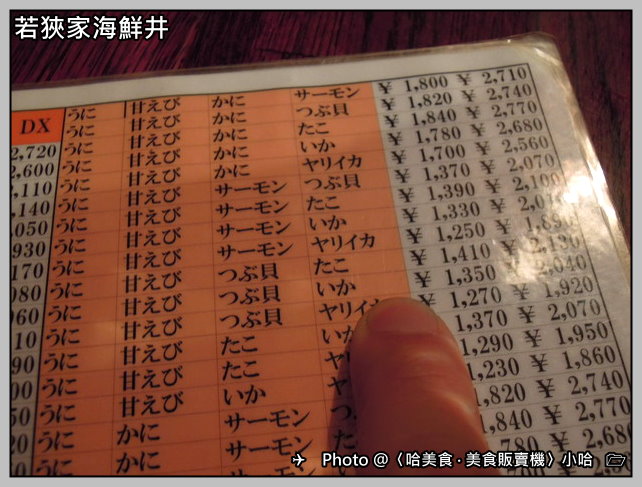 若狹家海鮮丼
DX うに 甘えび かに サーモン ¥ 1,800 ¥ 2,710
うに 甘えび かに つぶ貝 ¥ 1,820 ¥ 2,740
2,720 うに 甘えび かに たこ ¥ 1,840 ¥ 2,770
2,600 うに 甘えび かに いか ¥ 1,780 ¥ 2,680
,110 うに 甘えび かに ヤリイカ ¥ 1,700 ¥ 2,560
,140 うに 甘えび サーモン つぶ貝 ¥ 1,370 ¥ 2,070
,050 うに 甘えび サーモン たこ ¥ 1,390 ¥ 2,100
,930 うに 甘えび サーモン いか ¥ 1,330 ¥
,170 うに 甘えび サーモン ヤリイカ ¥ 1,250 ¥ 1,890
080 うに 甘えび つぶ貝 たこ ¥ 1,410 ¥ 2,130
060 うに 甘えび つぶ貝 いか ¥ 1,350 ¥ 2,040
10 うに 甘えび つぶ貝 ヤリイ ¥ 1,270 ¥ 1,920
90 うに 甘えび たこ いか ¥ 1,370 ¥ 2,070
00 うに 甘えび たこ ヤ 1,290 ¥ 1,950
50 うに 甘えび いか ヤ 1,230 ¥ 1,860
20 かに サーモン つ ,820 ¥ 2,740
かに サーモン た ,840 ¥ 2,770
サーモン 780 ¥ 2,680
Photo @〈哈美食 · 美食販賣機〉小哈